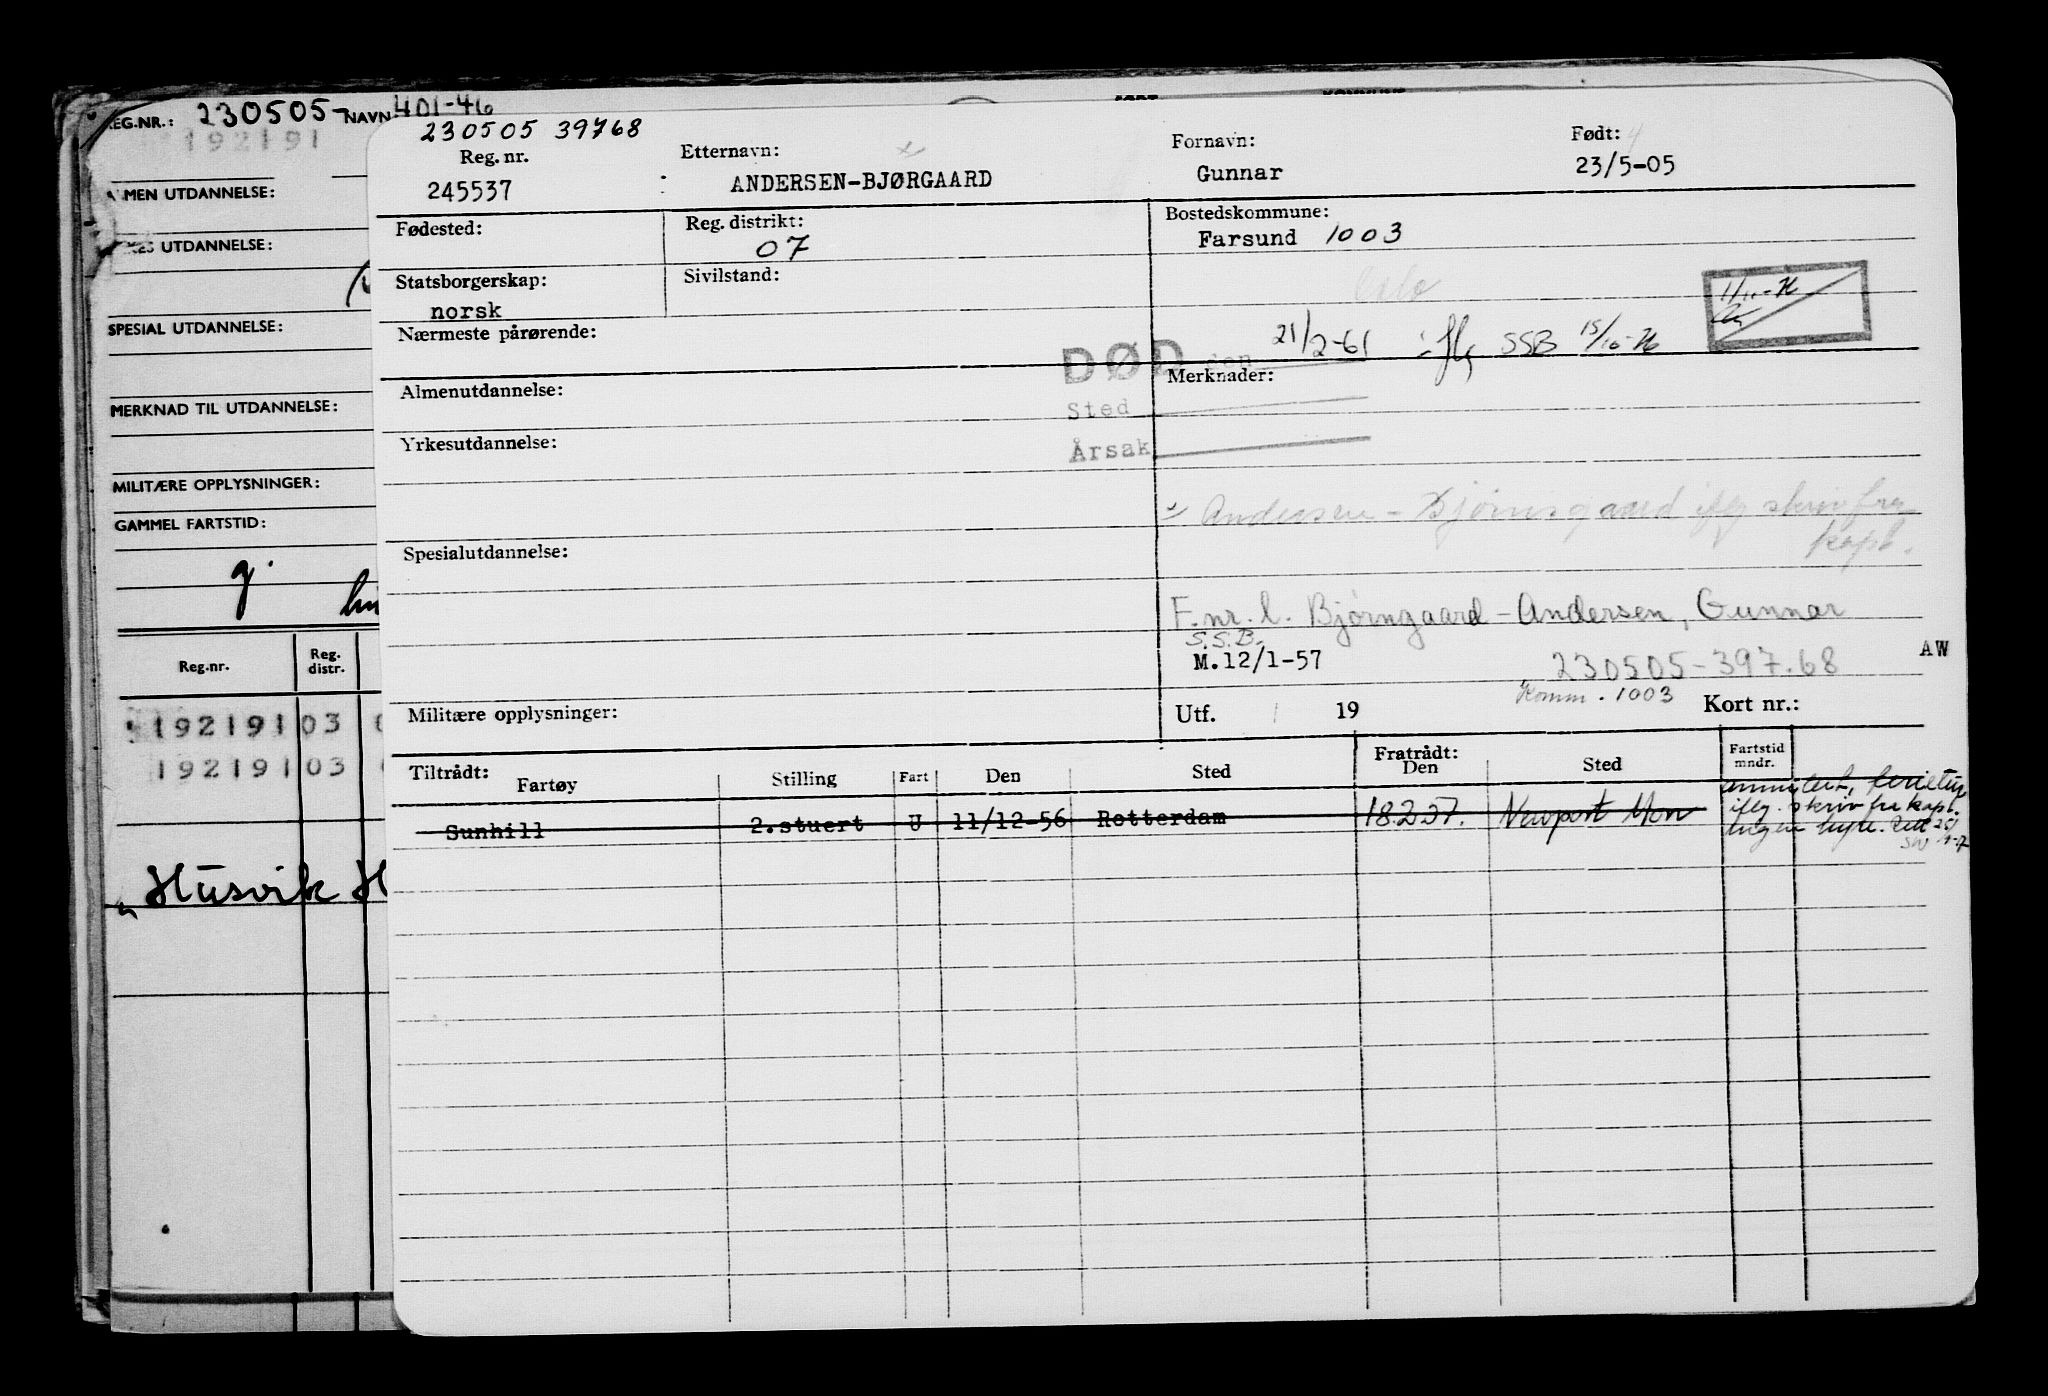 REG.NR.: 230505- NAVN 401-46
192191
ALMEN UTDANNELSE:
UTDANNELSE:
SPESIAL UTDANNELSE:
MERKNAD TIL UTDANNELSE:
MILITÆRE OPPLYSNINGER:
GAMMEL FARTSTID:
g.
Reg.nr. Reg. distr.
192191 03
192191 03
" Husvik H
230505 39768
Reg. nr. Etternavn: Fornavn: Født:
245537 ANDERSEN-BJØRGAARD Gunnar 23/5-05
Fødested: Reg. distrikt: Bostedskommune:
07 Farsund 1003
Statsborgerskap: Sivilstand:
norsk Oslo
Nærmeste pårørende:
DØD den 21/2-61 iflg SSB 15/10-76
Merknader:
Almenutdannelse:
Sted
Yrkesutdannelse:
Årsak
x Andersen-Bjørnsgaard iflg skriv fra
kapt.
Spesialutdannelse:
F.nr. l. Bjørngaard-Andersen, Gunnar
S.S.B.
M.12/1-57 230505-397.68 AW
Komm. 1003
Militære opplysninger: Utf. 19 Kort nr.:
Tiltrådt: Fratrådt: Fartstid
Fartøy Stilling Fart Den Sted Den Sted mndr.
Sunhill 2.stuert U 11/12-56 Rotterdam 18.2.57. Newport Mon
iflg. skriv fra kapt.
ingen hyre.